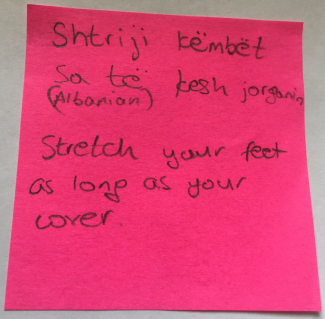 Shtriji këmbët
Sa të kesh jorganin
(Albanian)
Stretch your feet
as long as your
cover.